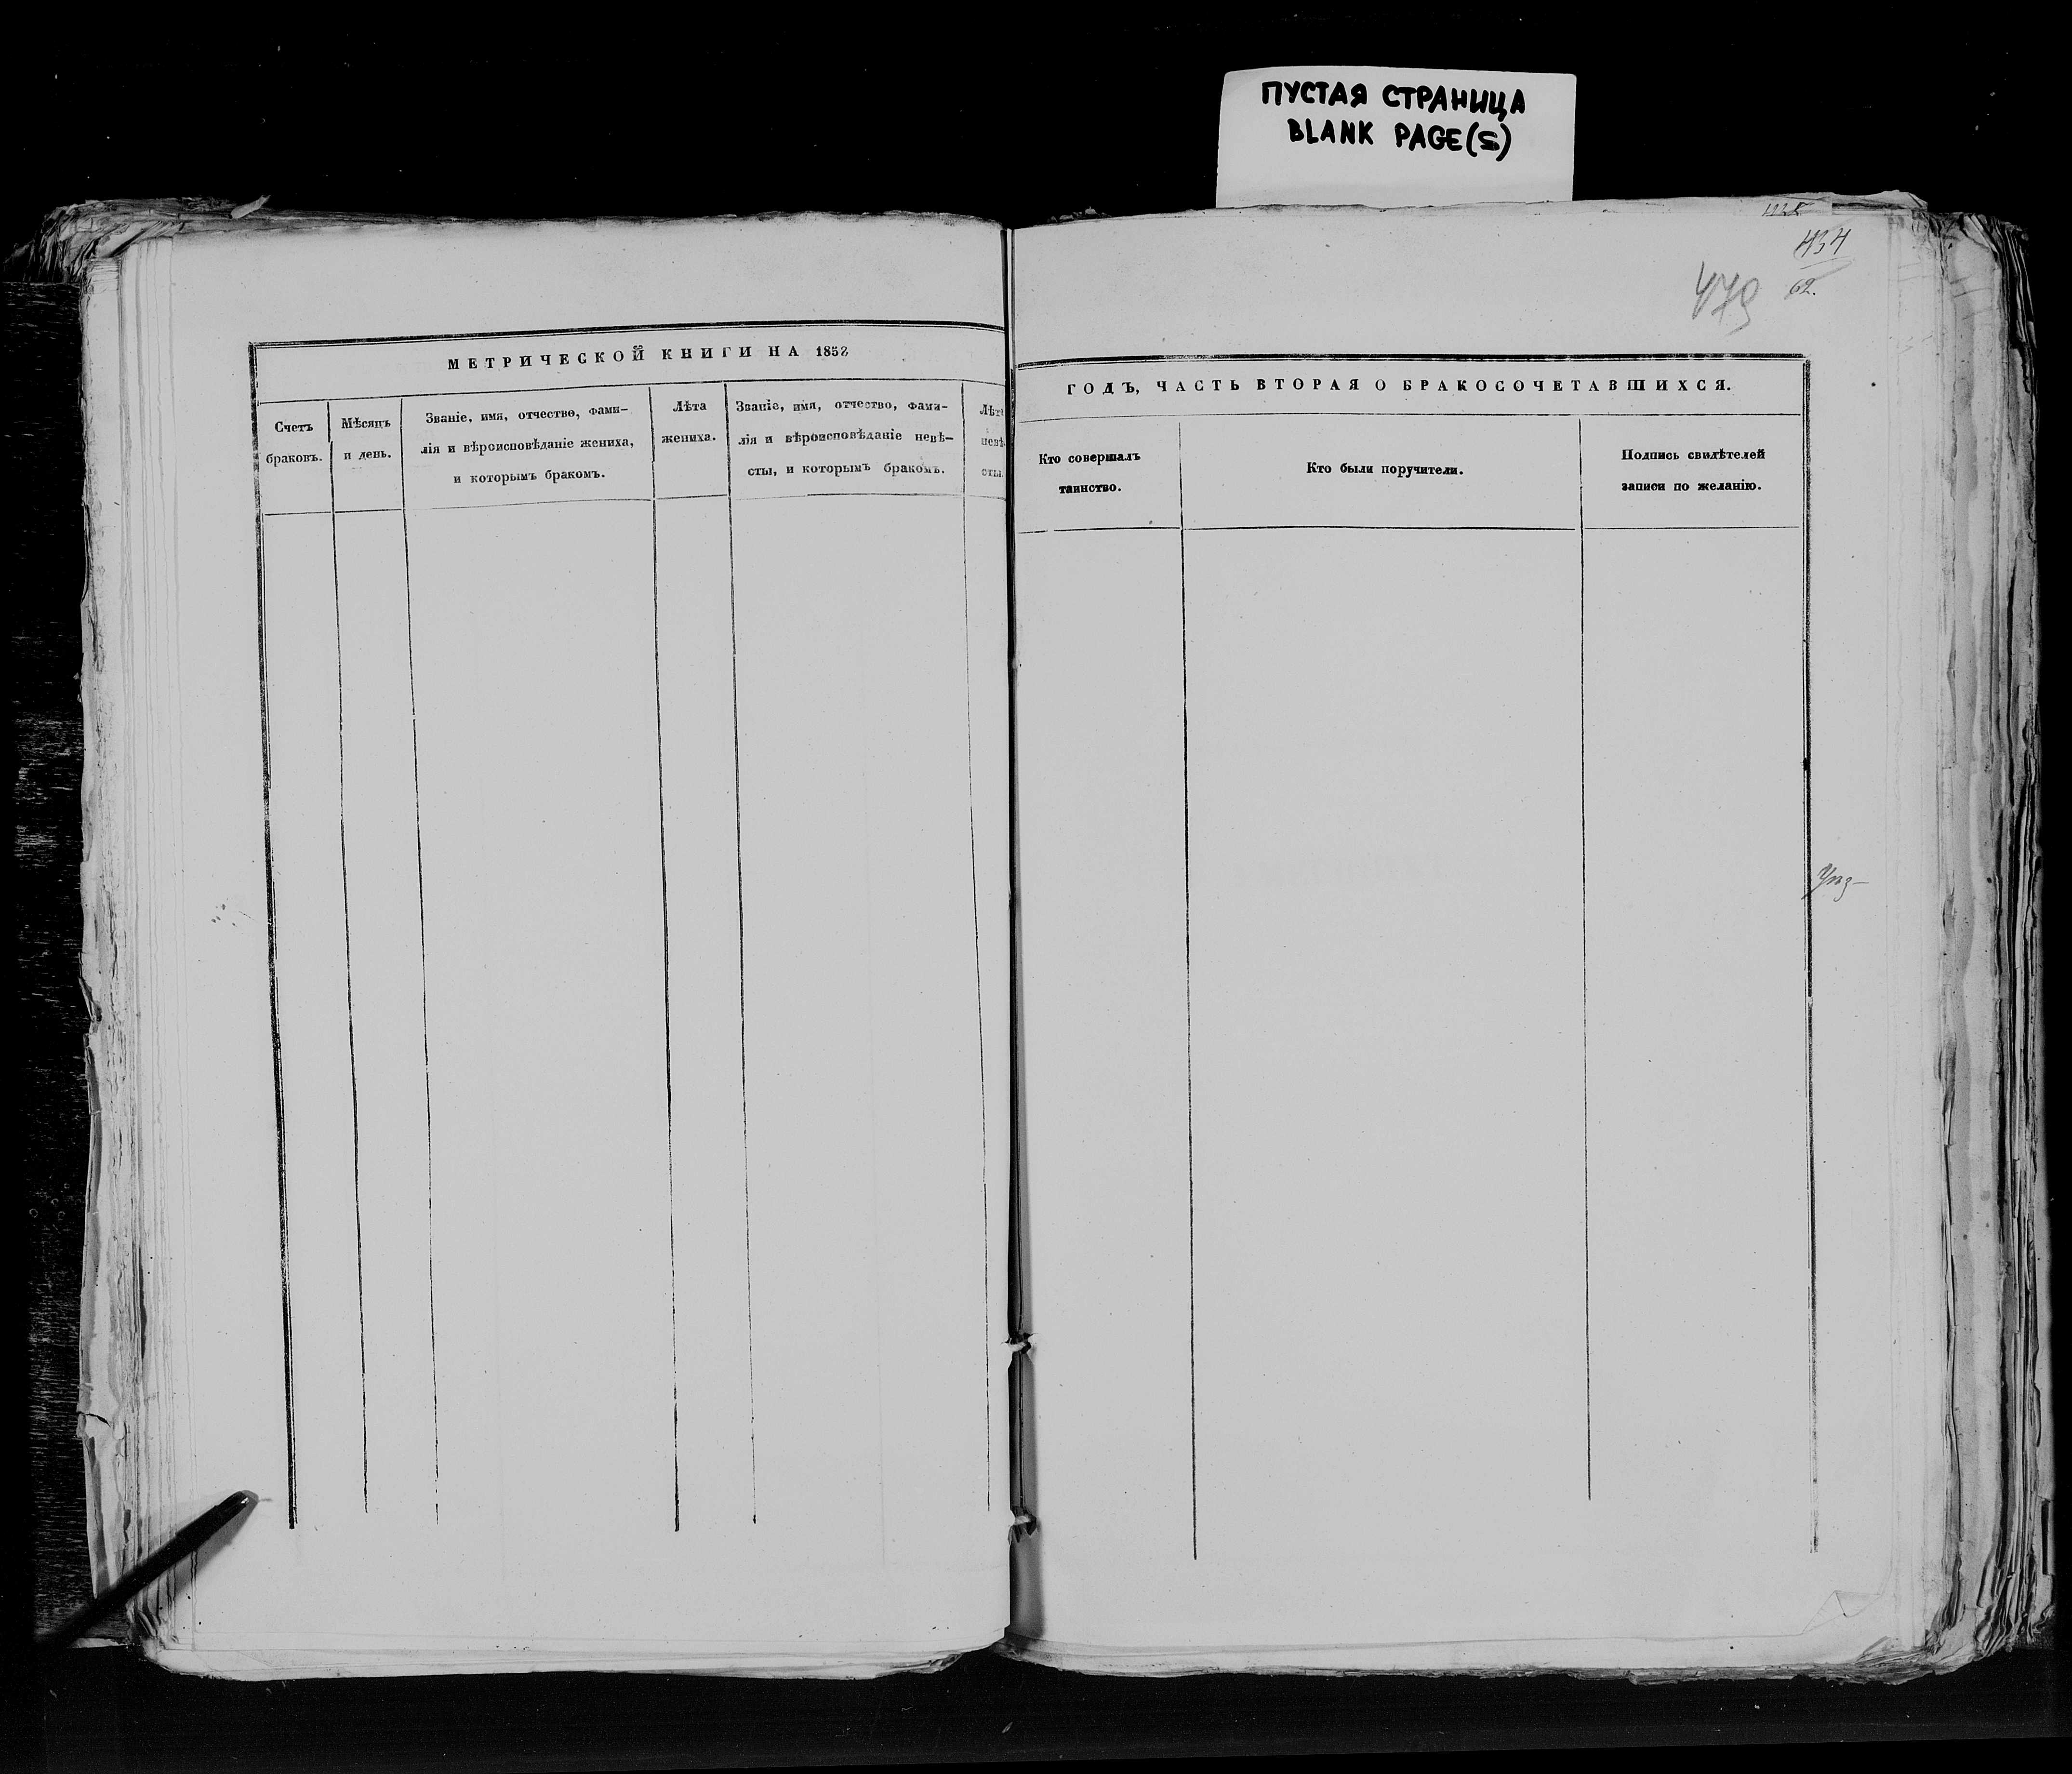 ПУСТАЯ СТРАНИЦА
BLANK PAGE(S)
434
479
62.
МЕТРИЧЕСКОЙ КНИГИ НА 1852
Счетъ
браковъ.
Мѣсяцъ
и день.
Званіе, имя, отчество, фами-
лія и вѣроисповѣданіе жениха,
и которымъ бракомъ.
Лѣта
жениха.
Званіе, имя, отчество, фами-
лія и вѣроисповѣданіе невѣ-
сты, и которымъ бракомъ.
Лѣта
невѣ-
сты.
ГОДЪ, ЧАСТЬ ВТОРАЯ О БРАКОСОЧЕТАВШИХСЯ.
Кто совершалъ
таинство.
Кто были поручители.
Подпись свидѣтелей
записи по желанію.